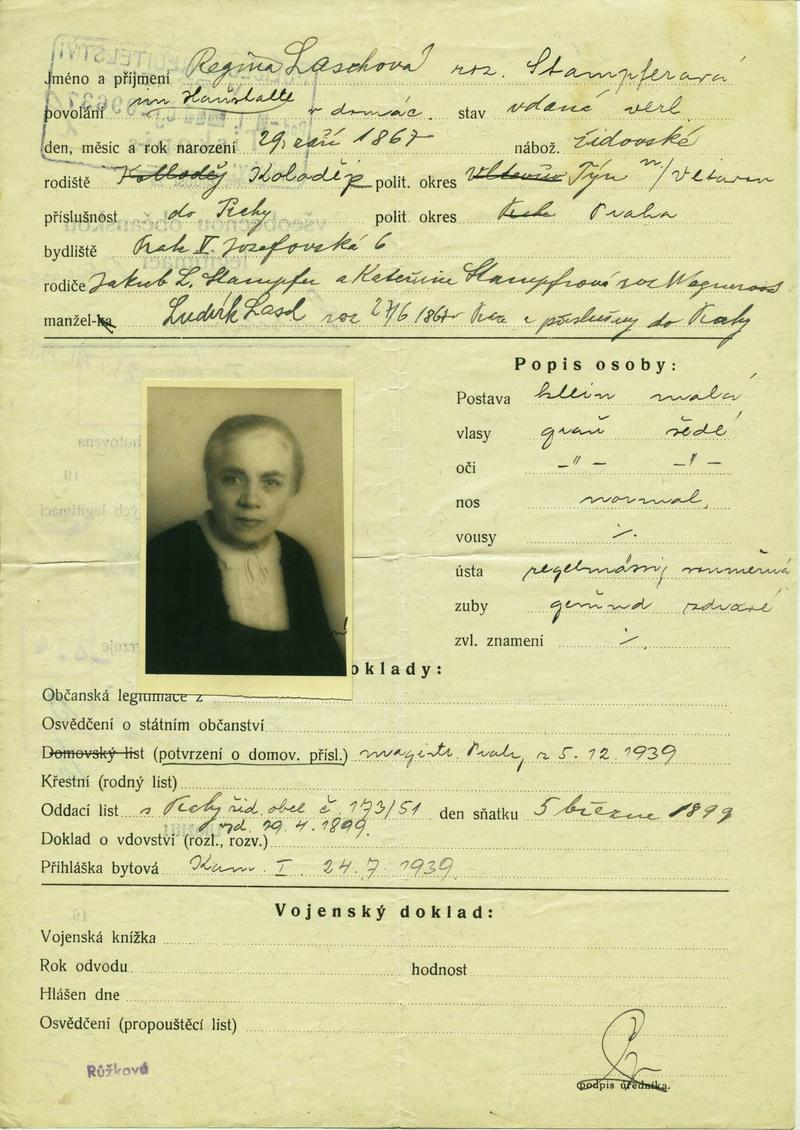 Jméno a příjmení Regina Laschová roz. Stampferová
povolání im Haushalte v domác. stav vdaná verh.
den, měsíc a rok narození 29. září 1867 nábož. židovské
rodiště Koloděj polit. okres Týn n/Vltavou
příslušnost do Prahy polit. okres Praha
bydliště Praha V. Josefovská 6
rodiče Jakub L. Stampfer a Kateřina Stampfrová roz Wagnerová
manžel-ka Ludvík Lasch roz 27/6 1867 v Praze a příslušný do Prahy
Popis osoby:
Postava klein malá
vlasy grau šedé
oči –"– –"–
nos normal.
vousy ./.
ústa regelmässig souměrná
zuby gesund zdravé
zvl. znamení ./.
oklady:
Občanská legitimace z
Osvědčení o státním občanství
Domovský list (potvrzení o domov. přísl.) magistr. Prahy z 5. 12. 1939
Křestní (rodný list)
Oddací list z Prahy žid. obec č. 173/51 den sňatku 5 března 1899
vyd. 29. 4. 1899.
Doklad o vdovství (rozl., rozv.)
Přihláška bytová Kom. I. 24. 7. 1939.
Vojenský doklad:
Vojenská knížka
Rok odvodu hodnost
Hlášen dne
Osvědčení (propouštěcí list)
Růžková
podpis úředníka.